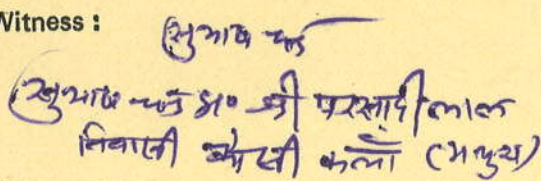 Witness :
सुभाष चन्द
सुभाष चन्द S/० श्री परसादी लाल
निवासी कोसी कलाँ (मथुरा)